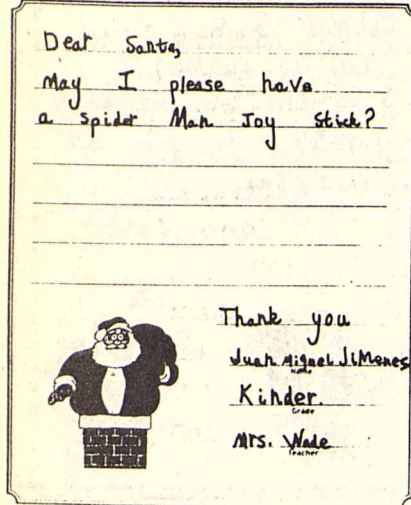 Dear Santa,
May I please have
a Spider Man Joy Stick?
Thank you
Juan Miguel JiMenes
Name
Kinder.
Grade
Mrs. Wade
Teacher